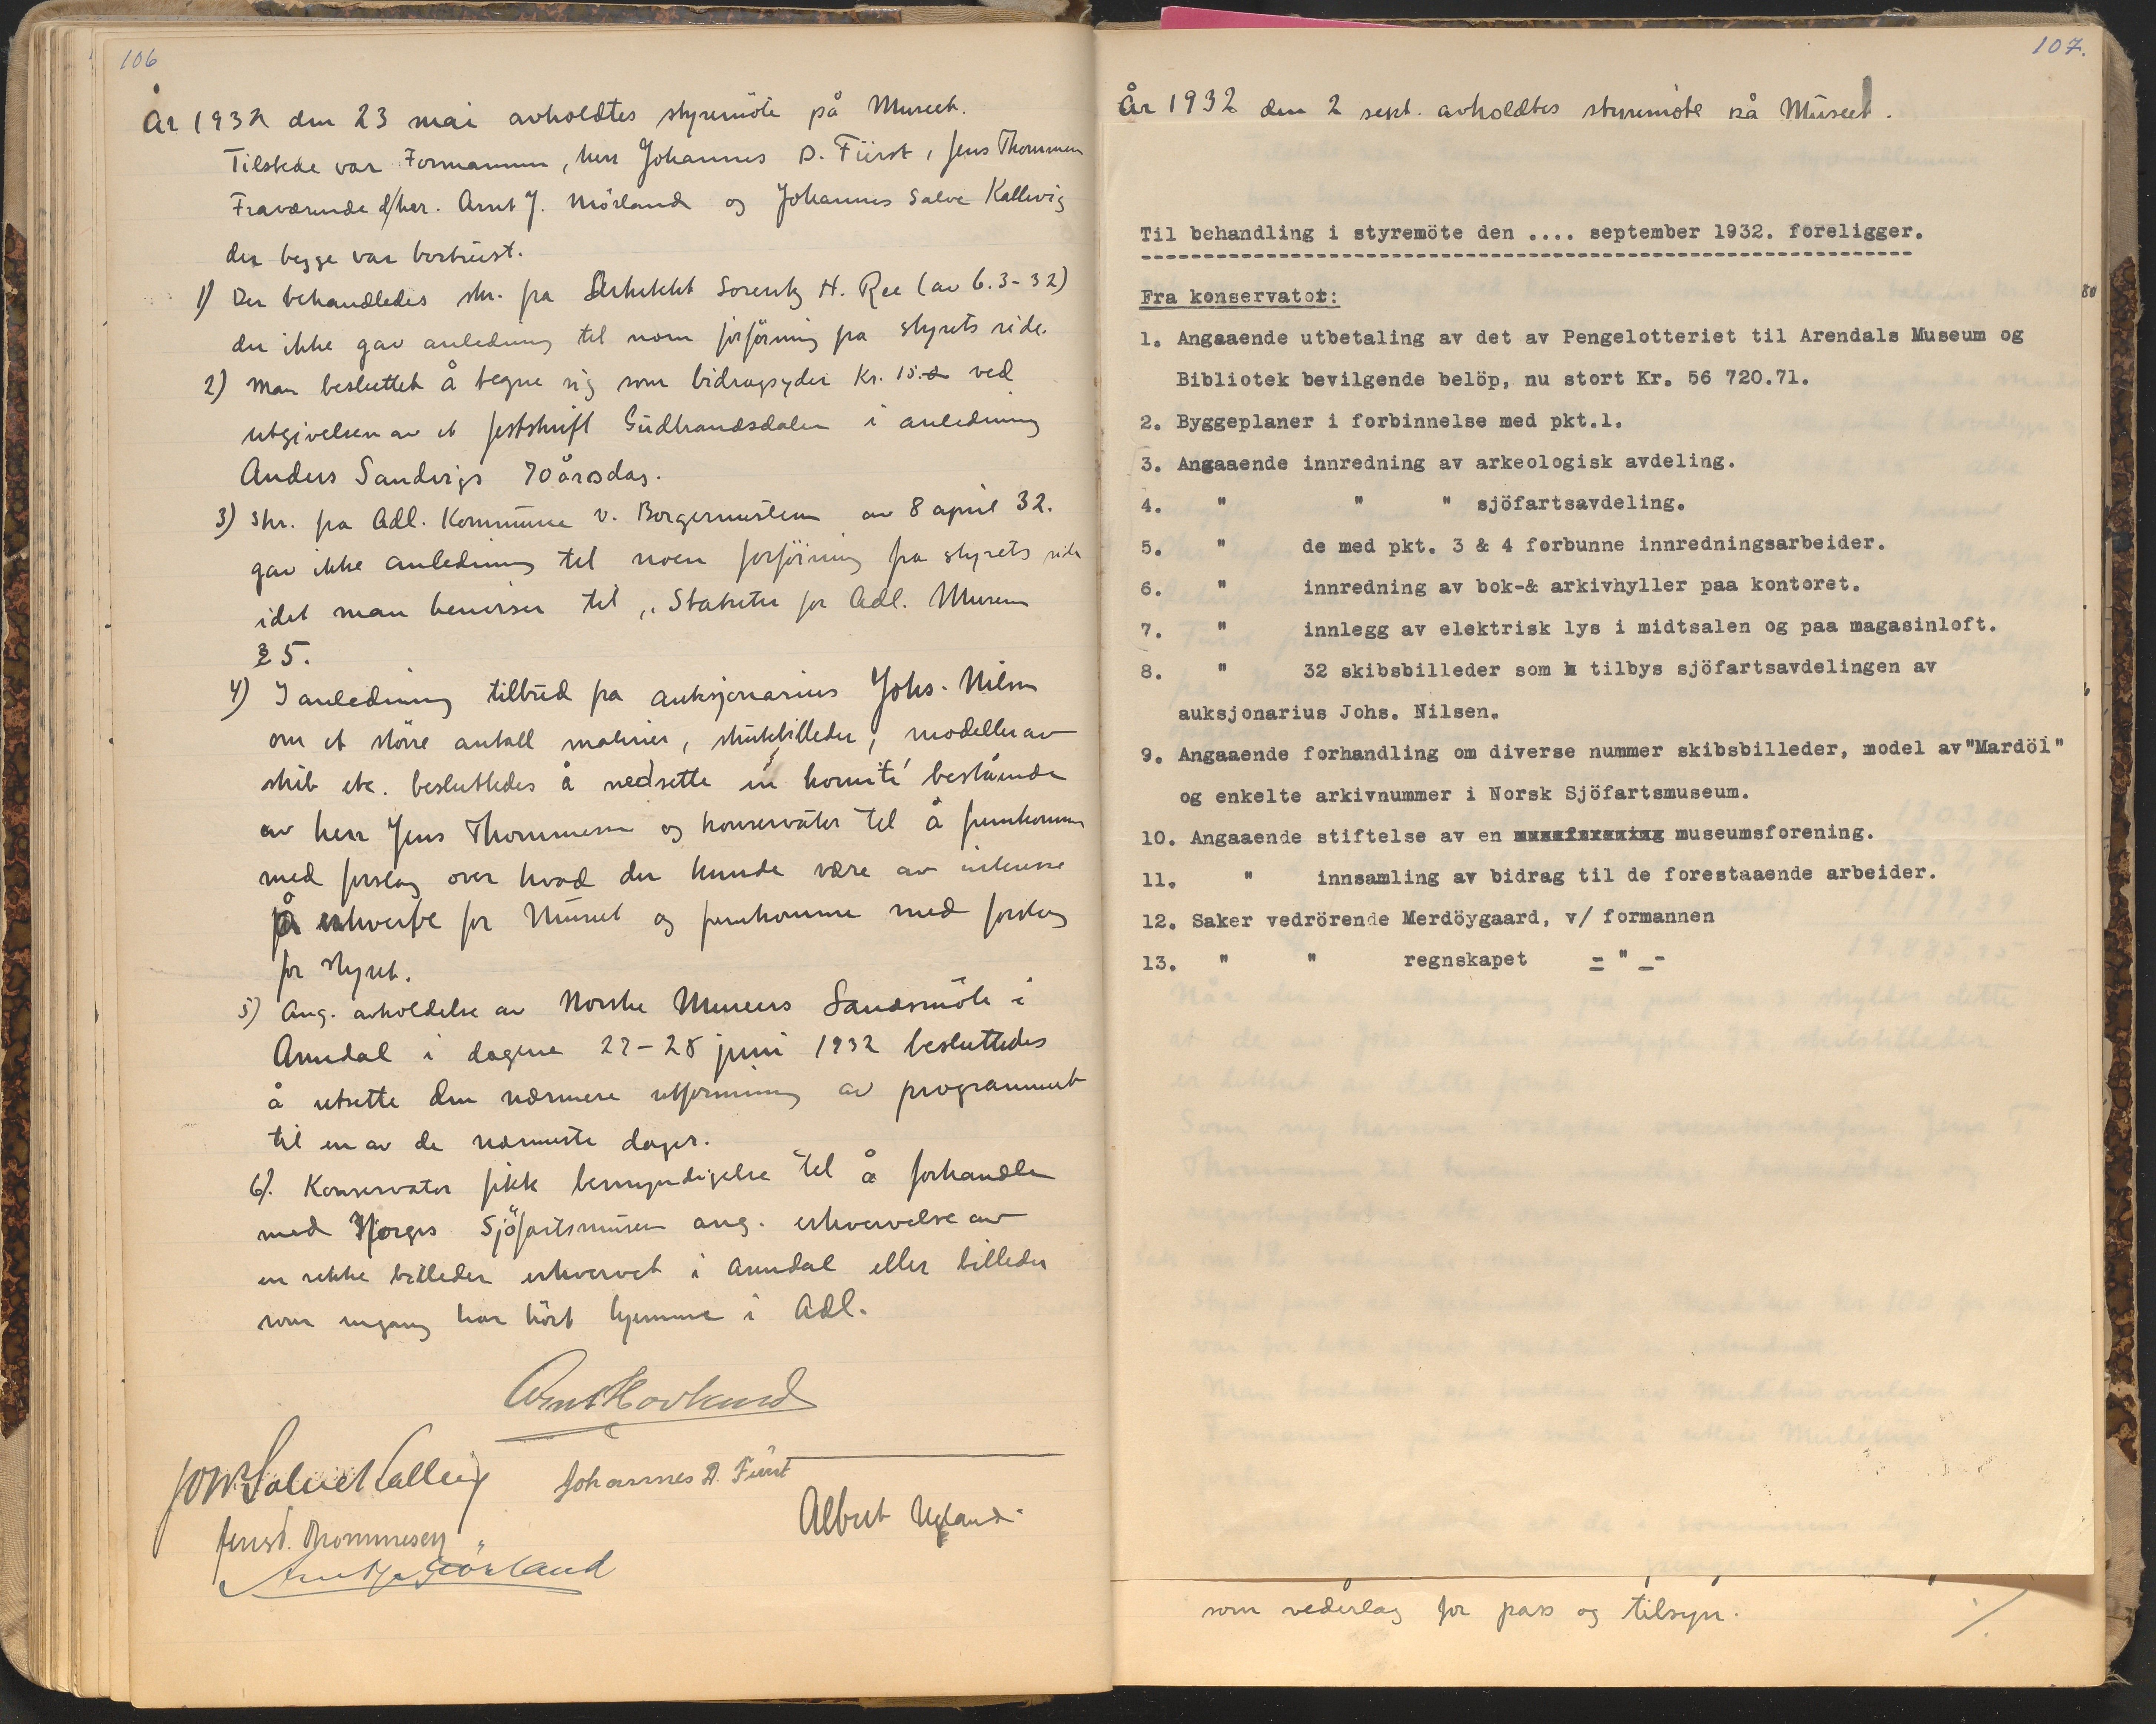 106
År 1932 den 23 mai avholdtes styremöte på Museet.
Tilstede var Formannen, herr Johannes D. Fürst, Jens Thommesen
Fraværende d/her. Arnt J. Mörland og Johannes Salve Kallevig
der begge var bortreist.
1) Der behandledes skr. fra Arkitekt Sorentz H. Ree (av 6.3-32)
der ikke gav anledning til noen forföining fra styrets side.
2) Man besluttet å tegne sig som bidragsyder Kr. 15.- ved
utgivelsen av et festskrift Gudbrandsdalen i anledning
Anders Sandvigs 70 årsdag.
3) Skr. fra Adl. Kommune v. Borgermesteren av 8 april 32.
gav ikke anledning til noen forföining fra styrets side
idet man henviser til „Statuter for Adl. Museum
§ 5.
4) I anledning tilbud fra auksjonarius Johs. Nilsen
om et större antall malerier, skutebilleder, modeller av
skib etc. besluttedes å nedsette en komité bestående
av herr Jens Thommesen og konservator til å fremkomme
med forslag over hvad der kunde være av interesse
å erhverve for Museet og fremkomme med forslag
for styret.
5) Ang. avholdelse av Norske Museers Landsmöte i
Arendal i dagene 27-28 juni 1932 besluttedes
å utsette den nærmere utformning av programmet
til en av de nærmeste dager.
6). Konservator fikk bemyndigelse til å forhandle
med Norges Sjöfartsmuseum ang. erhvervelse av
en rekke billeder erhvervet i Arendal eller billeder
som engang har hört hjemme i Adl.
Joh Salve Kallevig
Johannes D. Fürst
Albert Ugland
Jens T. Thommesen
Arnt J. Mörland
107.
År 1932 den 2 sept. avholdtes styremöte på Museet.
Til behandling i styremöte den .... september 1932. foreligger.
Fra konservator:
80
1. Angaaende utbetaling av det av Pengelotteriet til Arendals Museum og
Bibliotek bevilgende belöp, nu stort Kr. 56 720.71.
2. Byggeplaner i forbinnelse med pkt.1.
3. Angaaende innredning av arkeologisk avdeling.
4. " " " sjöfartsavdeling.
5. " de med pkt. 3 & 4 forbunne innredningsarbeider.
6. " innredning av bok-& arkivhyller paa kontoret.
7. " innlegg av elektrisk lys i midtsalen og paa magasinloft.
8. " 32 skibsbilleder som tilbys sjöfartsavdelingen av
auksjonarius Johs. Nilsen.
9. Angaaende forhandling om diverse nummer skibsbilleder, model av"Mardöl"
og enkelte arkivnummer i Norsk Sjöfartsmuseum.
10. Angaaende stiftelse av en museumsforening.
11. " innsamling av bidrag til de forestaaende arbeider.
12. Saker vedrörende Merdöygaard, v/ formannen
13. " " regnskapet = " _-
som vederlag for pass og tilsyn.